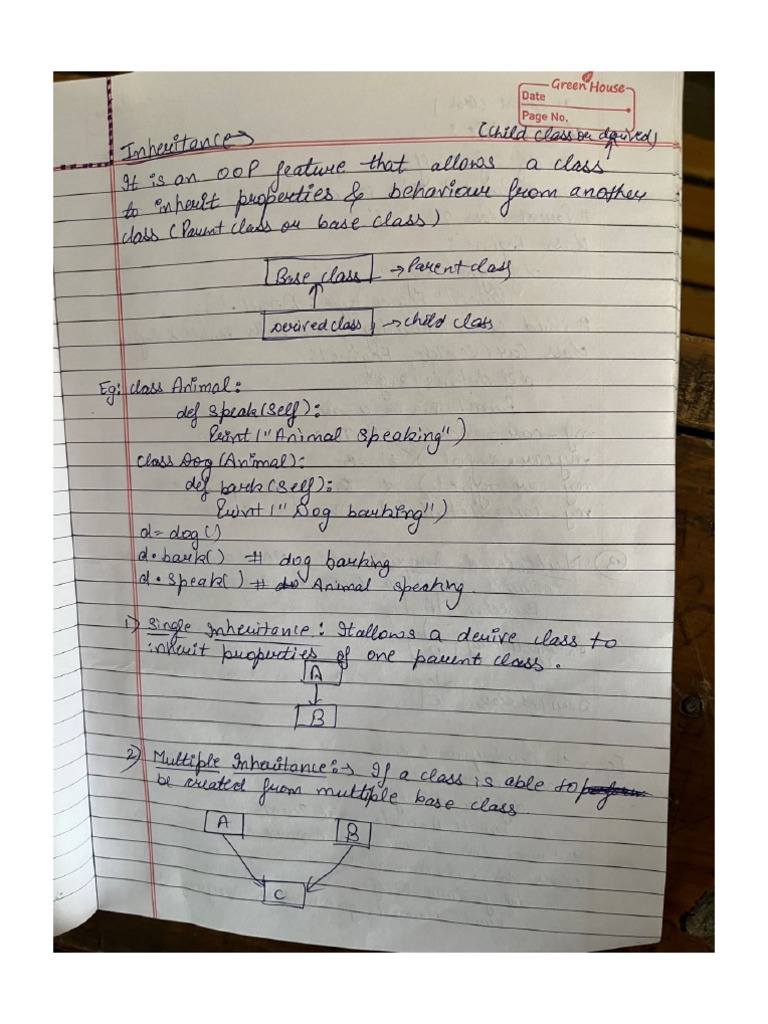 Green House
Date
Page No.
(Child class or derived)
Inheritance →
It is an OOP feature that allows a class
to inherit properties & behaviour from another
class (Parent class or base class)
Base class → Parent class
Derived class → child class
Eg: class Animal:
def speak(self):
Print("Animal speaking")
class Dog(Animal):
def bark(self):
Print("Dog barking")
d = dog()
d.bark() # dog barking
d.speak() # Animal speaking
1) Single Inheritance: It allows a derive class to
inherit properties of one parent class.
A
B
2) Multiple Inheritance:→ If a class is able to
be created from multiple base class
A B
C